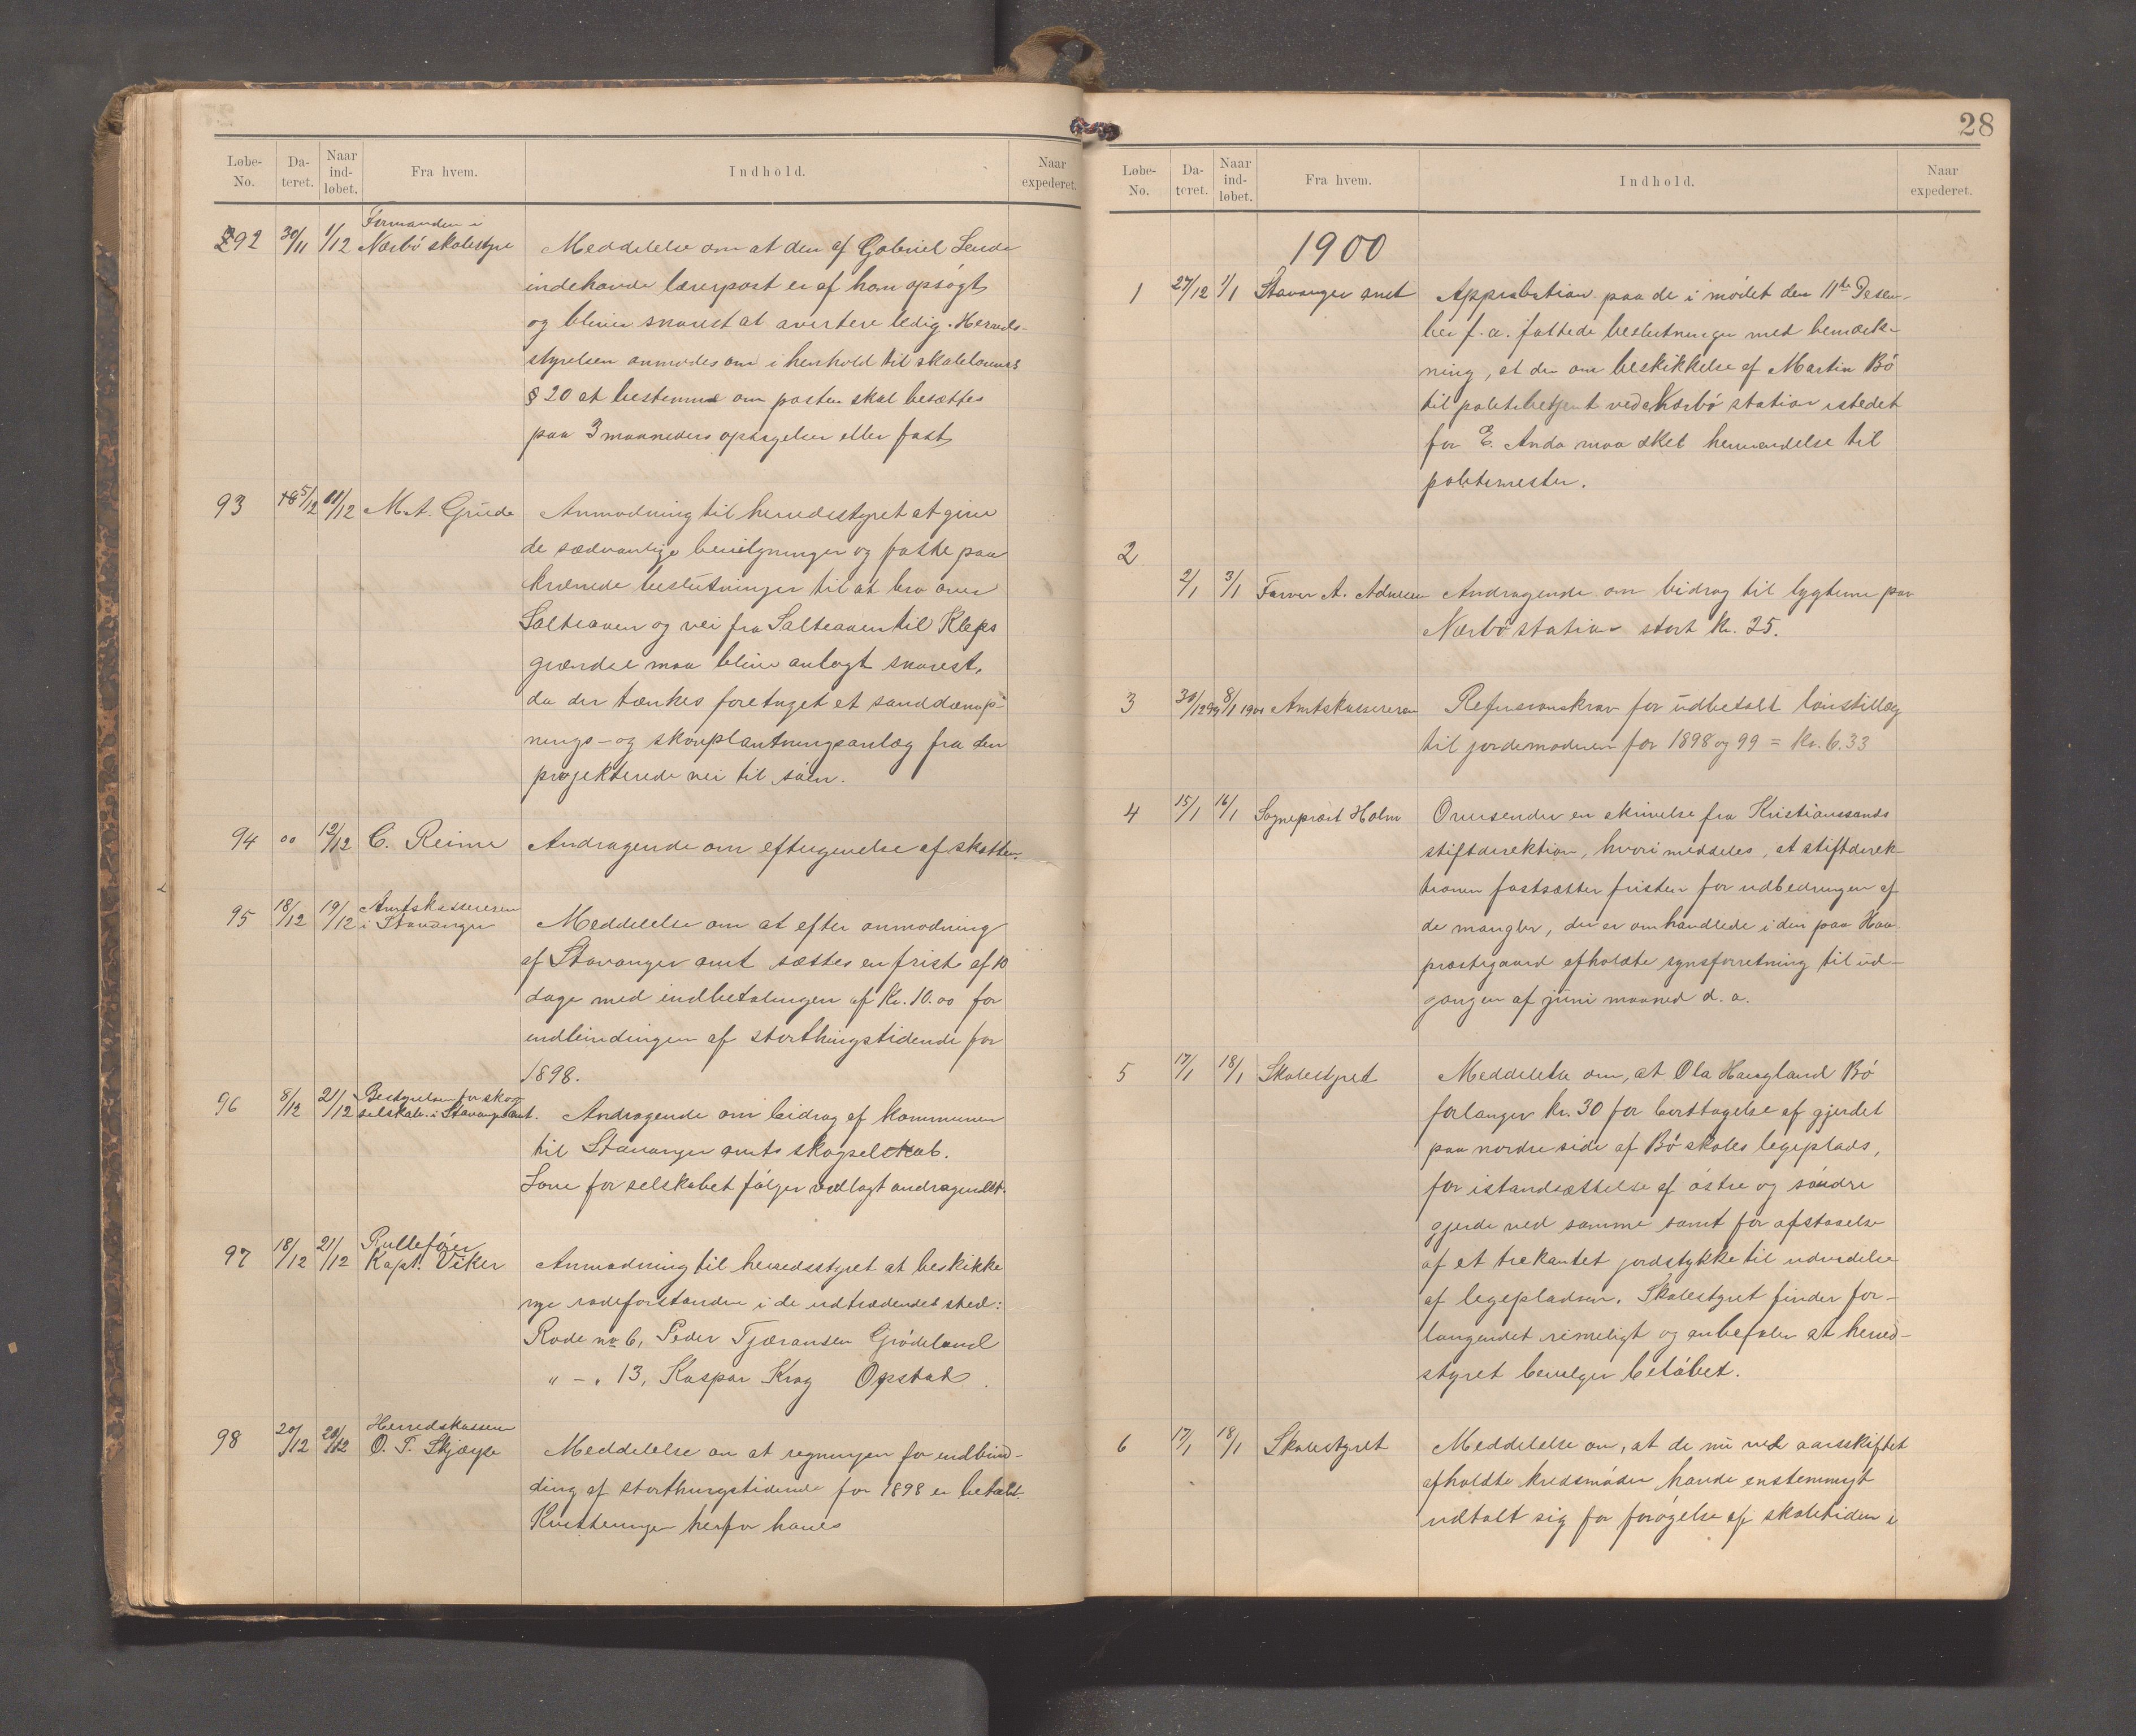 Løbe-No. Da-teret. Naar ind-løbet. Fra hvem. Indhold. Naar expederet.
92 30/11 1/12 Formanden i Nærbø skolestyre Meddelelse om at den af Gabriel Lende
indehavde lærerpost er af ham opsøgt
og bliver snarest at avertere ledig. Herreds-
styrelsen anmodes om i henhold til skolelovens
§ 20 at bestemme om posten skal besættes
paa 3 maaneders opsigelse eller fast
93 5/12 11/12 M. A. Grude Anmodning til herredsstyret at give
de sædvanlige bevilgninger og fatte paa
krævede beslutninger til at bro over
Salteaaen og vei fra Salteaaen til Kleps
grændse maa blive anlagt snarest,
da der tænkes foretaget et sanddæmp-
nings- og skovplantningsanlæg fra den
projekterede vei til søen.
94 00 12/12 C. Reime Andragende om eftergivelse af skatten.
95 18/12 19/12 Amtskassereren i Stavanger Meddelelse om at efter anmodning
af Stavanger amt sættes en frist af 10
dage med indbetalingen af Kr. 10.00 for
indbindingen af storthingstidende for
1898.
96 8/12 21/12 Bestyrelsen for skog-selskab. i Stavanger amt. Andragende om bidrag af kommunen
til Stavanger amts skogselskab.
Love for selskabet følger vedlagt andragendet.
97 18/12 21/12 Rullefører Kapt. Viker Anmodning til herredsstyret at beskikke
nye rodeforstandere i de udtrædendes sted:
Rode no 6, Peder Tjæransen Grødeland
" - " 13, Kaspar Krog Opstad.
98 20/12 20/12 Herredskasserer O. T. Skjæye Meddelelse om at regningen for indbin-
ding af storthingstidende for 1898 er betalt.
Kvitteringen herfor haves
28
Løbe-No. Da-teret. Naar ind-løbet. Fra hvem. Indhold. Naar expederet.
1900
1 27/12 1/1 Stavanger amt Approbation paa de i mødet den 11te Desem-
ber f. a. fattede beslutninger med bemærk-
ning, at der om beskikkelse af Martin Bø
til politibetjent ved Nærbø station istedet
for E. Anda maa skee henvendelse til
politimester.
2
2/1 3/1 Farver A. Adnesen Andragende om bidrag til lygterne paa
Nærbø station stort kr. 25.
3 30/12 99 8/1 1900 Amtskassereren Refusionskrav for udbetalt lønstillæg
til jordemødren for 1898 og 99 = Kr. 6.33
4 15/1 16/1 Sogneprest Holm Oversender en skrivelse fra Kristianssands
stiftdirektion, hvori meddeles, at stiftdirek-
tionen fastsætter fristen for udbedringen af
de mangler, der er omhandlede i den paa Haa
prestegaard afholdte synsforretning til ud-
gangen af juni maaned d. a.
5 17/1 18/1 Skolestyret Meddelelse om, at Ola Haugland Bø
forlanger kr. 30 for borttagelse af gjerdet
paa nordre side af Bø skoles legeplads,
for istandsættelse af østre og søndre
gjerde ved samme samt for afstaaelse
af et trekantet jordstykke til udvidelse
af legepladsen. Skolestyret finder for-
langendet rimeligt og anbefaler at herred-
styret bevilger beløbet.
6 17/1 18/1 Skolestyret Meddelelse om, at de nu ved aarsskiftet
afholdte kredsmøder havde enstemmigt
udtalt sig for forøgelse af skoletiden i